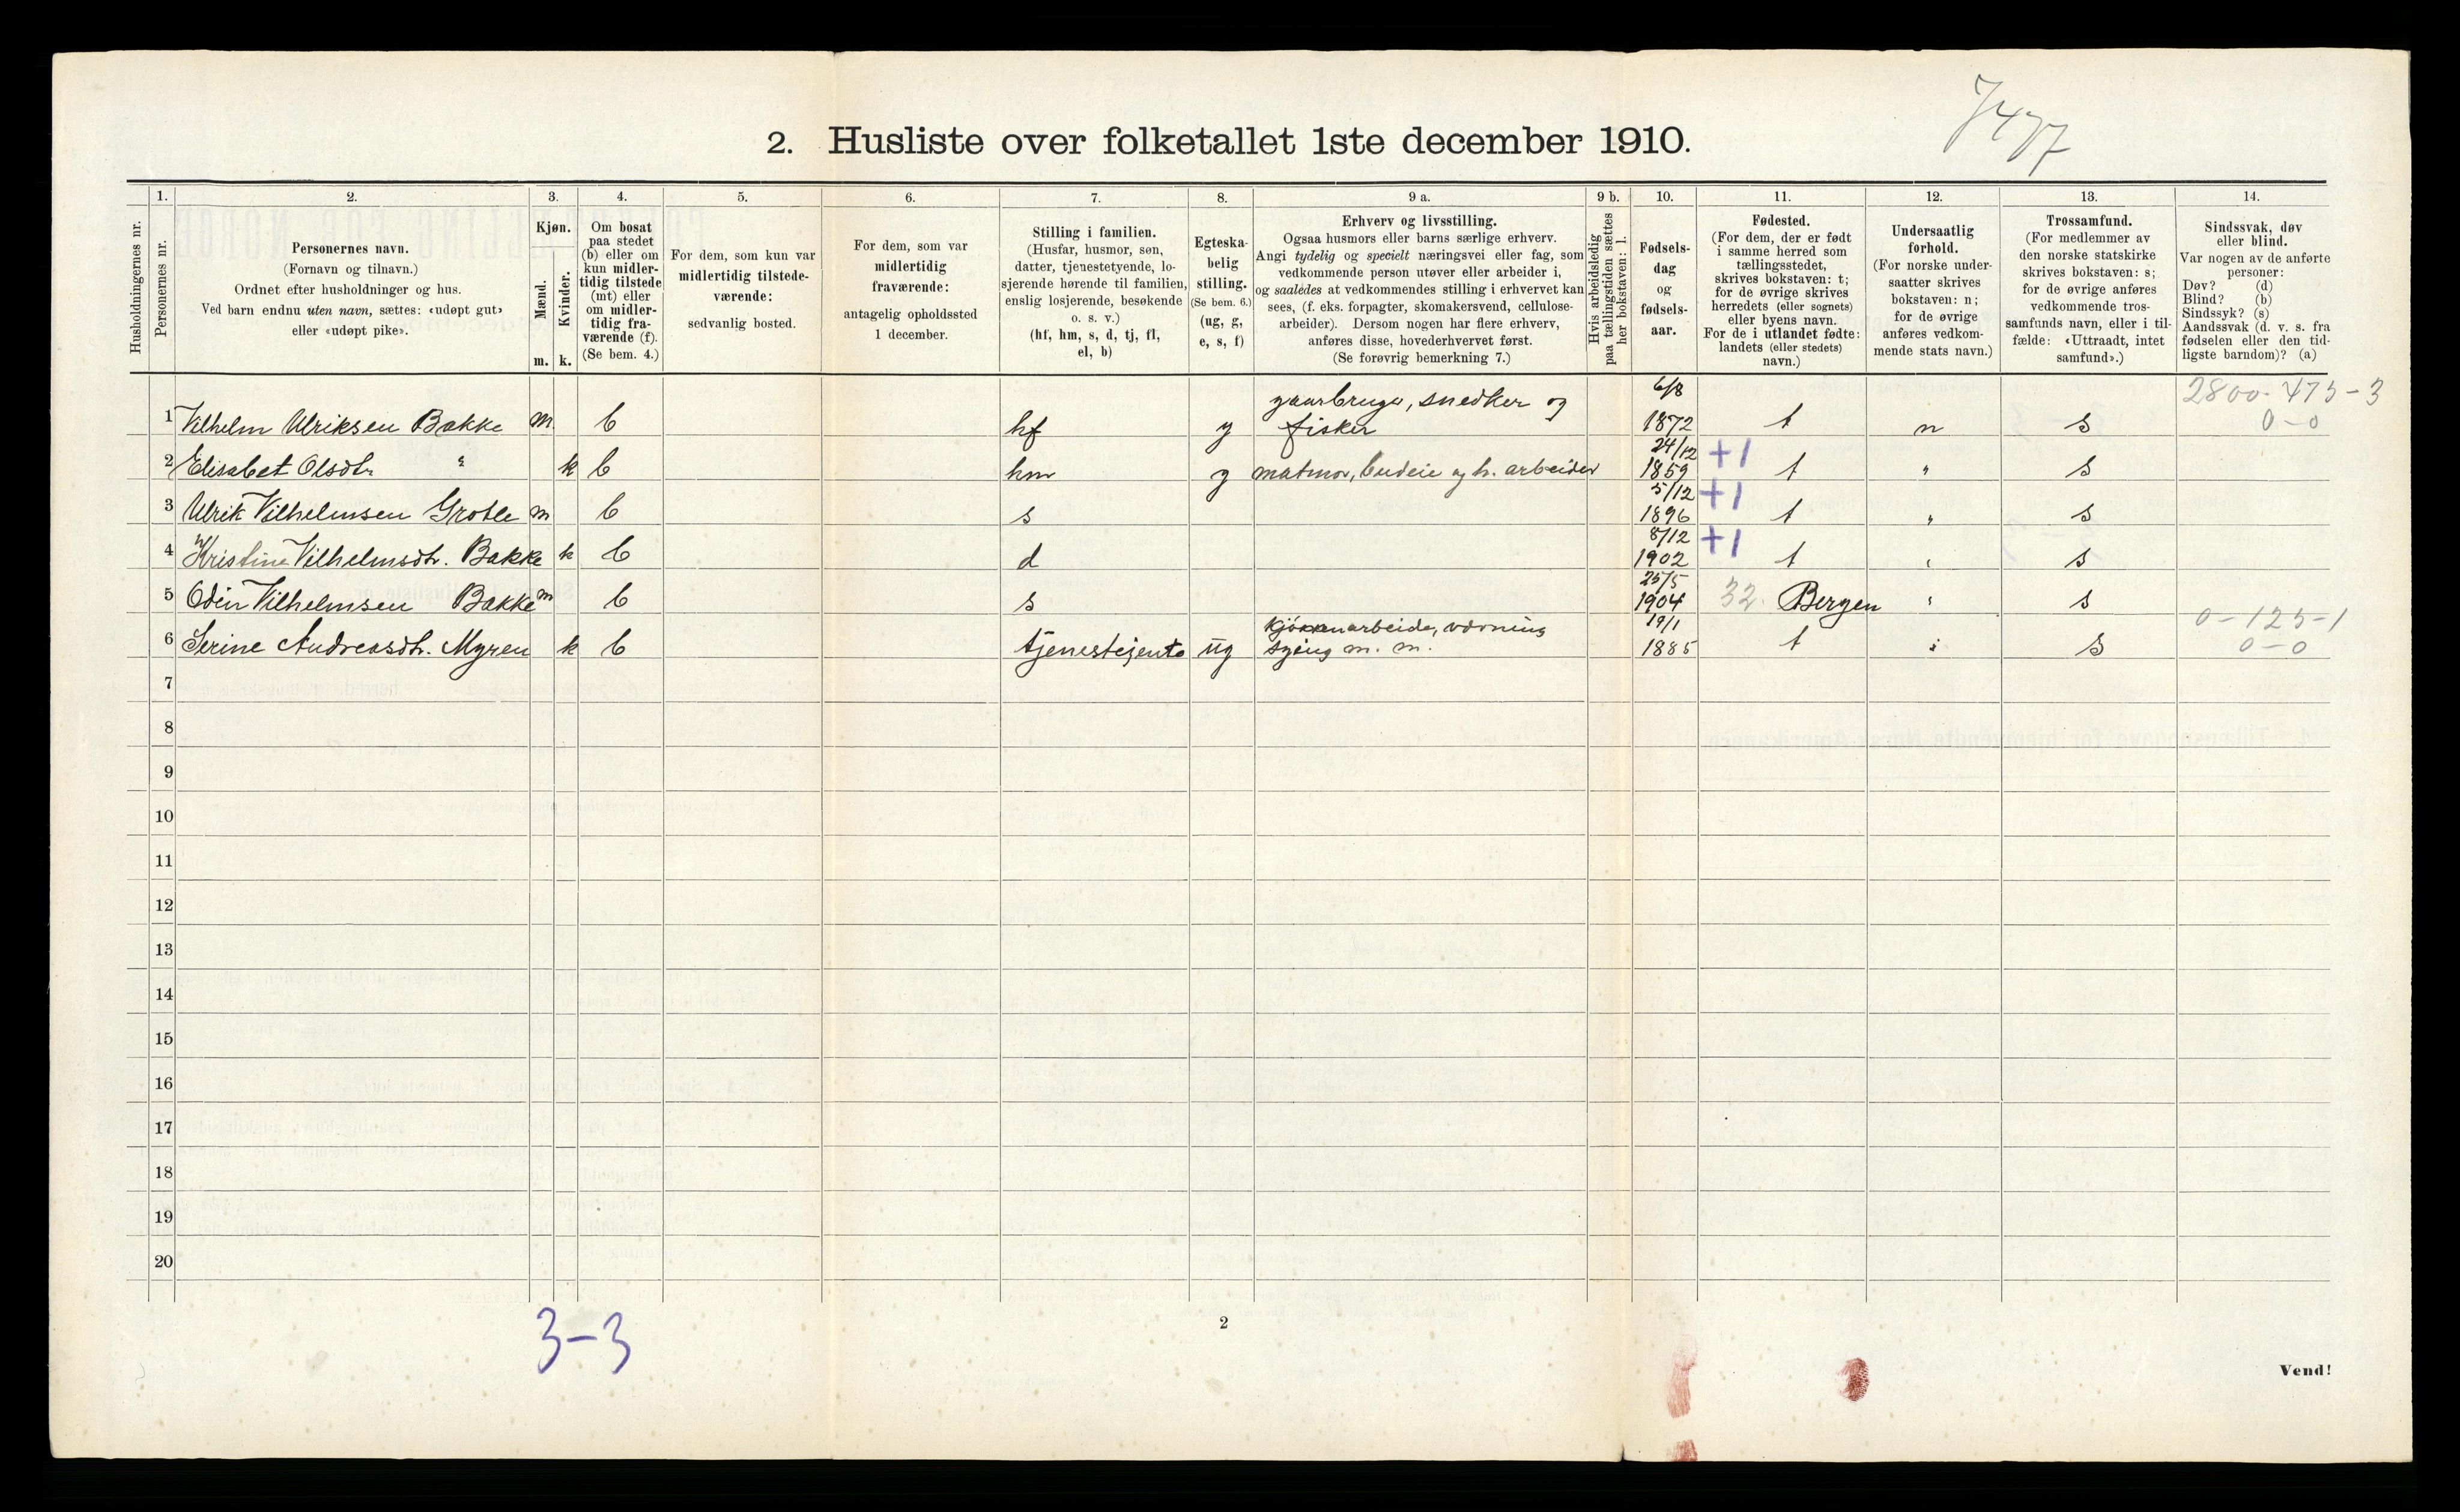 7477
2. Husliste over folketallet 1ste december 1910.
1. 2. 3. 4. 5. 6. 7. 8. 9 a. 9 b. 10. 11. 12. 13. 14.
Husholdningernes nr.
Personernes nr.
Personernes navn.
(Fornavn og tilnavn.)
Ordnet efter husholdninger og hus.
Ved barn endnu uten navn, sættes: «udøpt gut»
eller «udøpt pike».
Kjøn.
Mænd.
Kvinder.
m. k.
Om bosat
paa stedet
(b) eller om
kun midler-
tidig tilstede
(mt) eller
om midler-
tidig fra-
værende (f).
(Se bem. 4.)
For dem, som kun var
midlertidig tilstede-
værende:
sedvanlig bosted.
For dem, som var
midlertidig
fraværende:
antagelig opholdssted
1 december.
Stilling i familien.
(Husfar, husmor, søn,
datter, tjenestetyende, lo-
sjerende hørende til familien,
enslig losjerende, besøkende
o. s. v.)
(hf, hm, s, d, tj, fl,
el, b)
Egteska-
belig
stilling.
(Se bem. 6.)
(ug, g,
e, s, f)
Erhverv og livsstilling.
Ogsaa husmors eller barns særlige erhverv.
Angi tydelig og specielt næringsvei eller fag, som
vedkommende person utøver eller arbeider i,
og saaledes at vedkommendes stilling i erhvervet kan
sees, (f. eks. forpagter, skomakersvend, cellulose-
arbeider). Dersom nogen har flere erhverv,
anføres disse, hovederhvervet først.
(Se forøvrig bemerkning 7.)
Hvis arbeidsledig
paa tællingstiden sættes
her bokstaven: l.
Fødsels-
dag
og
fødsels-
aar.
Fødested.
(For dem, der er født
i samme herred som
tællingsstedet,
skrives bokstaven: t;
for de øvrige skrives
herredets (eller sognets)
eller byens navn.
For de i utlandet fødte:
landets (eller stedets)
navn.)
Undersaatlig
forhold.
(For norske under-
saatter skrives
bokstaven: n;
for de øvrige
anføres vedkom-
mende stats navn.)
Trossamfund.
(For medlemmer av
den norske statskirke
skrives bokstaven: s;
for de øvrige anføres
vedkommende tros-
samfunds navn, eller i til-
fælde: «Uttraadt, intet
samfund».)
Sindssvak, døv
eller blind.
Var nogen av de anførte
personer:
Døv? (d)
Blind? (b)
Sindssyk? (s)
Aandssvak (d. v. s. fra
fødselen eller den tid-
ligste barndom)? (a)
gaarbruger, snedker og 6/8 2800-475-3
1 Vilhelm Ulriksen Bakke m b hf g fisker 1872 t n s 0-0
24/12
2 Elisabet Olsdtr " k b hm g matmor, budeie og h. arbeider 1859 +1 t " s
5/12
3 Ulrik Vilhelmsen Grotle m b s 1896 +1 t " s
8/12
4 Kristine Vilhelmsdtr. Bakke k b d 1902 +1 t " s
25/5
5 Odin Vilhelmsen Bakke m b s 1904 32 Bergen " s
kjøkkenarbeide, vævning 19/1 0-125-1
6 Serine Andreasdtr. Myren k b tjenestejente ug sying m. m. 1885 t " s 0-0
7
8
9
10
11
12
13
14
15
16
17
18
19
20
3-3
2
Vend!